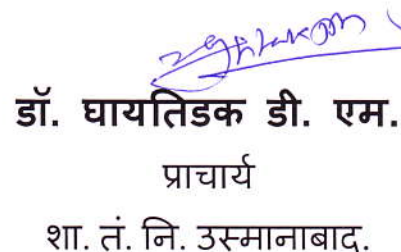 डॉ. घायतिडक डी. एम.
प्राचार्य
शा. तं. नि. उस्मानाबाद.